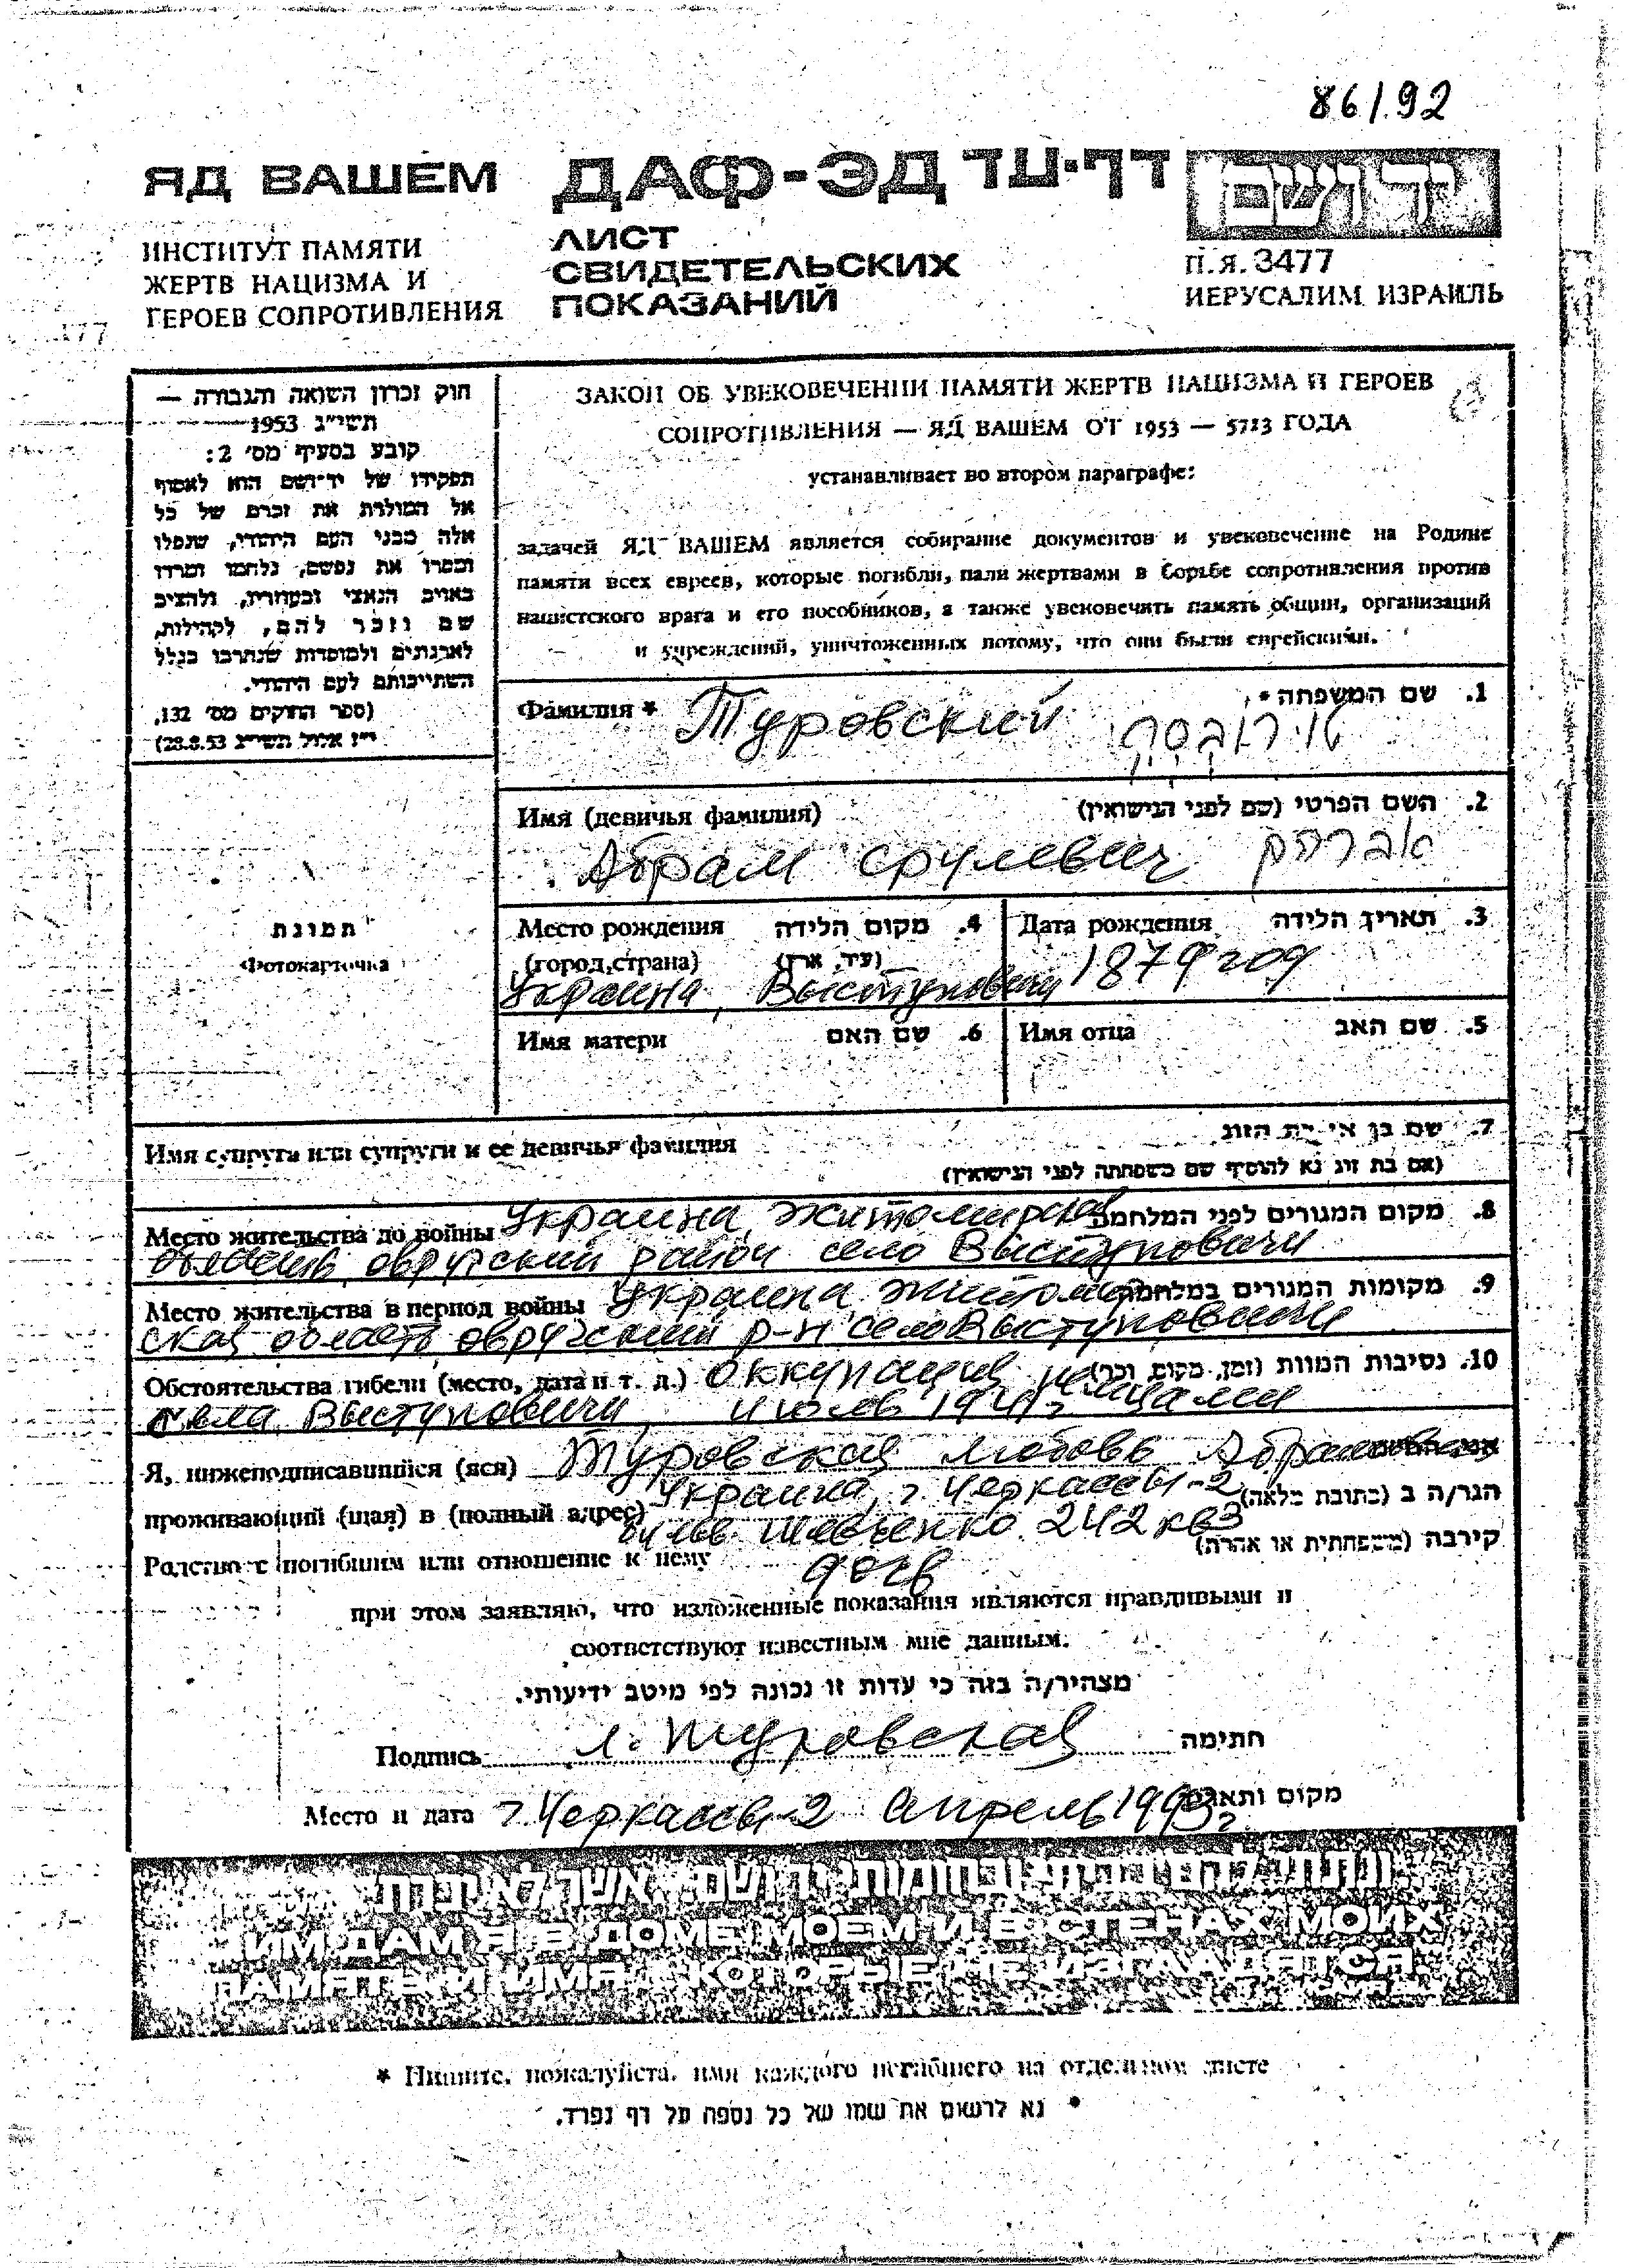 86/92
ЯД ВАШЕМ
ДАФ-ЭД דף-עד
יד ושם
ИНСТИТУТ ПАМЯТИ
ЖЕРТВ НАЦИЗМА И
ГЕРОЕВ СОПРОТИВЛЕНИЯ
ЛИСТ
СВИДЕТЕЛЬСКИХ
ПОКАЗАНИЙ
П.Я. 3477
ИЕРУСАЛИМ ИЗРАИЛЬ
חוק זכרון השואה והגבורה —
תשי"ג 1953
קובע בסעיף מס' 2:
תפקידו של יד-ושם הוא לאסוף
אל המולדת את זכרם של כל
אלה מבני העם היהודי, שנפלו
ומסרו את נפשם, נלחמו ומרדו
באויב הנאצי ובעוזריו, ולהציב
שם וזכר להם, לקהילות,
לארגונים ולמוסדות שנחרבו בגלל
השתייכותם לעם היהודי.
(ספר החוקים מס' 132,
י"ז אלול תשי"ג 28.8.53)
ЗАКОН ОБ УВЕКОВЕЧЕНИИ ПАМЯТИ ЖЕРТВ НАЦИЗМА И ГЕРОЕВ
СОПРОТИВЛЕНИЯ — ЯД ВАШЕМ ОТ 1953 — 5713 ГОДА
устанавливает во втором параграфе:
задачей ЯД ВАШЕМ является собирание документов и увековечение на Родине
памяти всех евреев, которые погибли, пали жертвами в борьбе сопротивления против
нацистского врага и его пособников, а также увековечить память общин, организаций
и учреждений, уничтоженных потому, что они были еврейскими.
Фамилия * Туровский טורובסקי 1. שם המשפחה *
Имя (девичья фамилия) 2. השם הפרטי (שם לפני הנישואין)
Абрам Срулевич אברהם
תמונה
Фотокарточка
Место рождения 4. מקום הלידה
(город, страна) (עיר, ארץ)
Украина, Выступовичи
Дата рождения 3. תאריך הלידה
1879 год
Имя матери 6. שם האם
Имя отца 5. שם האב
Имя супруга или супруги и ее девичья фамилия 7. שם בן או בת הזוג
(אם בת זוג נא להוסיף שם משפחתה לפני הנישואין)
Место жительства до войны Украина, Житомирская 8. מקום המגורים לפני המלחמה
область, овручский район село Выступовичи
Место жительства в период войны Украина Житомир- 9. מקומות המגורים במלחמה
ская область овручский р-н село Выступовичи
Обстоятельства гибели (место, дата и т. д.) оккупация немцами 10. נסיבות המוות (זמן, מקום, וכו')
села Выступовичи, июль 1941г
Я, нижеподписавшийся (яся) Туровская Любовь Абрамовна
проживающий (щая) в (полный адрес) Украина, г. Черкассы-2 הגר/ה ב (כתובת מלאה)
бульв. Шевченко 242 кв3
Родство с погибшим или отношение к нему дочь קירבה (משפחתית או אחרת)
при этом заявляю, что изложенные показания являются правдивыми и
соответствуют известным мне данным.
מצהיר/ה בזה כי עדות זו נכונה לפי מיטב ידיעותי.
Подпись Л. Туровская חתימה
Место и дата г. Черкассы-2 апрель 1993г. מקום ותאריך
ונתתי להם בביתי ובחומותי יד ושם... אשר לא יכרת
ИМ ДАМ Я В ДОМЕ МОЕМ И В СТЕНАХ МОИХ
ПАМЯТЬ И ИМЯ, КОТОРЫЕ НЕ ИЗГЛАДЯТСЯ
* Пишите, пожалуйста, имя каждого погибшего на отдельном листе
* נא לרשום את שמו של כל נספה על דף נפרד.